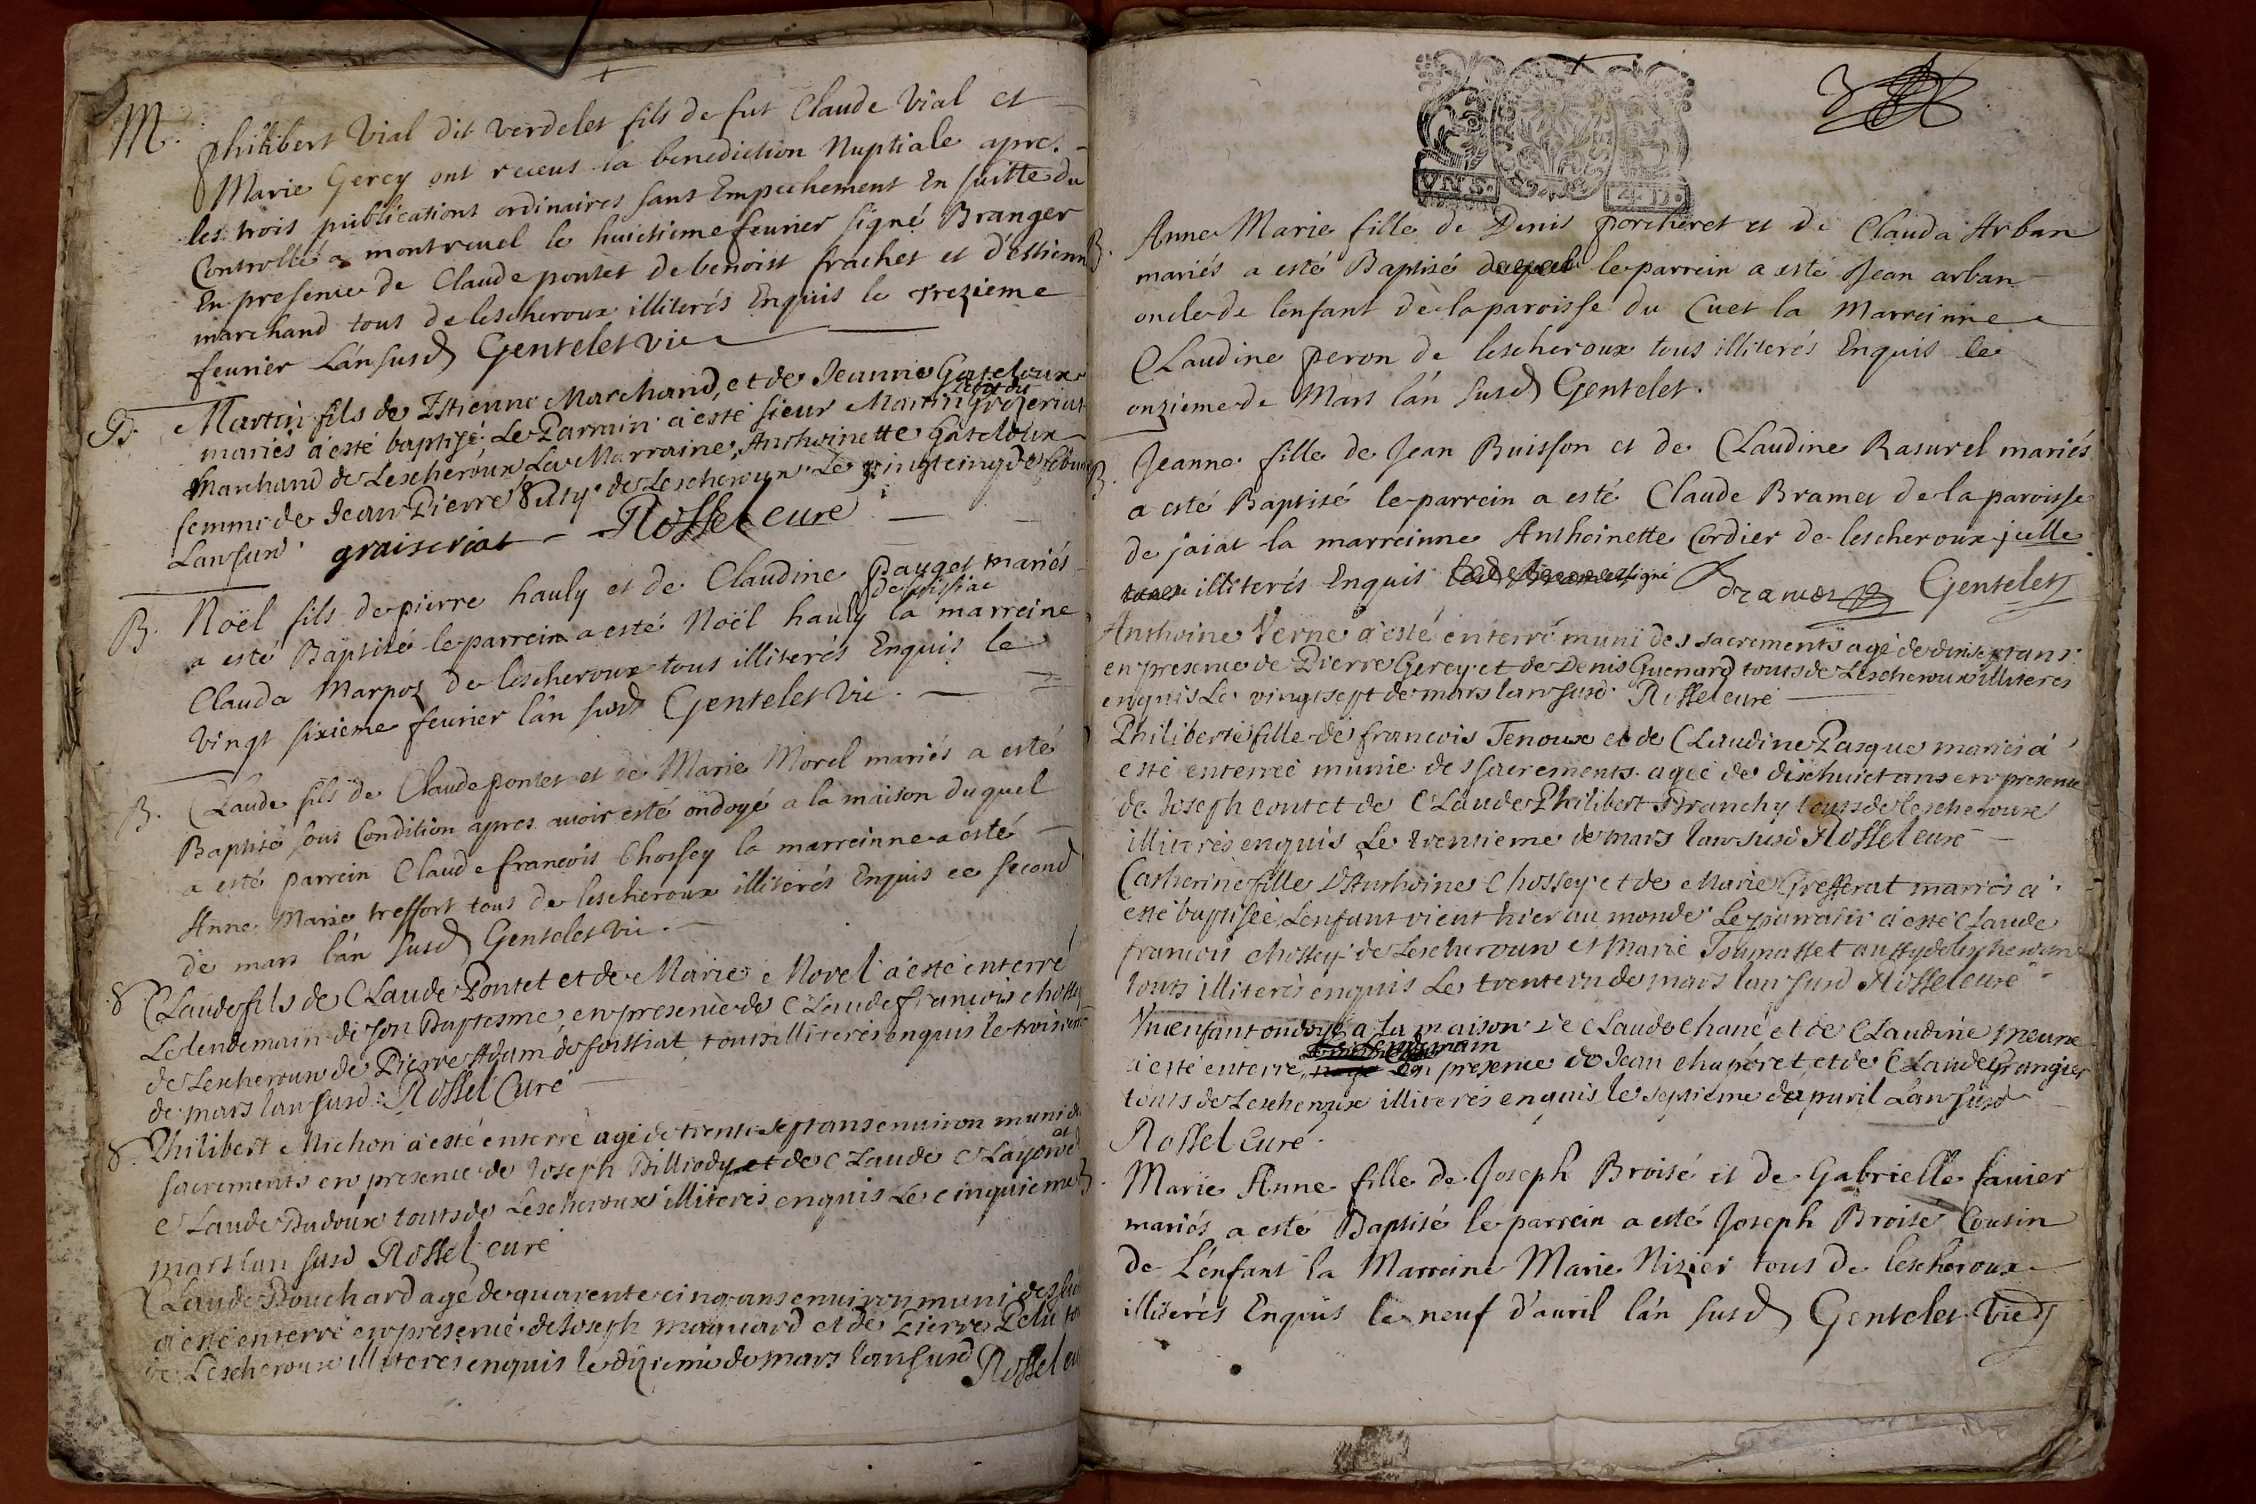 M.
Philibert Vial dit verdelet fils de fut Claude Vial et
Marie Gerey ont receus la benediction Nuptiale apres
les trois publications ordinaires sans Empechement En suitte du
Controlle a montreuel le huictieme feurier signé Branger
En presence de Claude pontet de benoist frachet et d'estienne
marchand tous de lescheroux illiterés Enquis le trezieme
feurier l'an susd Gentelet vic
B. Martin fils de Estienne Marchand, et de Jeanne Gateloux
mariés a esté baptisé Le Parrain a esté sieur Martin
Marchand de Lescheroux La Marraine Anthoinette Gateloux
femme de Jean Pierre de Lescheroux Le vingtcinq de
Lan susd graiseriat Rossel curé
B. Noël fils de pierre hauly et de Claudine pauget mariés
a esté Baptisé le parrein a esté Noël hauly la marreine
Clauda Marpoz de lescheroux tous illiterés Enquis le
Vingt sixieme feurier l'an susd Gentelet Vic
B. Claude fils de Claude pontet et de Marie Morel mariés a esté
Baptisé sous Condition apres auoir esté ondoyé a la maison duquel
a esté parrein Claude francois Chossey la marreinne a esté
Anne Marie treffort tous de lescheroux illiterés Enquis ce second
de mars l'an susd Gentelet vic
Claude fils de Claude Pontet et de Marie Morel a esté enterré
Le lendemain de son Baptesme en presence de Claude francois chossey
de Lescheroux de Pierre Adam de foissiat tous illiterés enquis le troisieme
de mars lan susd Rossel Curé
Philibert Michon a esté enterré agé de trente sept ans enuiron muni des
sacrements en presence de Joseph Billiody et de Claude
Claude Dudoux touts de Lescheroux illiterés enquis Le cinquieme
mars lan susd Rossel curé
Claude Bouchard agé de quarente cinq ans enuiron muni des
a esté enterré en presence de Joseph et de Pierre
de Lescheroux illiterés enquis le dizieme de mars lan susd Rossel
VN S. 4. D.
B. Anne Marie fille de Denis porcheret et de Clauda Arban
mariés a esté Baptisé le parrein a esté Jean arban
oncle de lenfant de la paroisse du Cuet la Marreinne
Claudine peron de lescheroux tous illiterés Enquis le
onzieme de Mars l'an susd Gentelet.
B. Jeanne fille de Jean Buisson et de Claudine Rasurel mariés
a esté Baptisé le parrein a esté Claude Bramet de la paroisse
de jaiat la marreinne Anthoinette Cordier de lescheroux jcelle
illiterés Enquis signé Bramet Gentelet
Anthoine Verne a esté enterré muni des sacrements agé de
en presence de Pierre Gerey et de Denis Guenard touts de Lescheroux illiteres
enquis Le vingtsept de mars lan susd Rossel curé
Philiberte fille de francois Tenoux et de Claudine Pasque mariés a
esté enterrée munie des sacrements agée de dixhuict ans en presence
de Joseph contet de Claude Philibert Branchy touts de lescheroux
illiterés enquis Le trentieme de mars lan susd Rossel curé
Catherine fille d'Anthoine Chossey et de Marie Grefferat mariés a
esté baptisée Lenfant vient hier au monde Le parrain a esté Claude
francois chossey de Lescheroux et Marie aussy de lescheroux
touts illiterés enquis Le trente un de mars lan susd Rossel curé
Vn enfant ondoyé a la maison de Claude chané et de Claudine
Le Lendemain
a esté enterré en presence de Jean chaperet, et de Claude Grangier
touts de Lescheroux illiterés enquis le septieme d'apuril Lan susd
Rossel Curé.
Marie Anne fille de Joseph Broisé et de Gabrielle fauier
mariés a esté Baptisé le parrein a esté Joseph Broise Cousin
de L'enfant la Marreine Marie Nizier tous de lescheroux
illiterés Enquis le neuf d'auril l'an susd Gentelet Vic